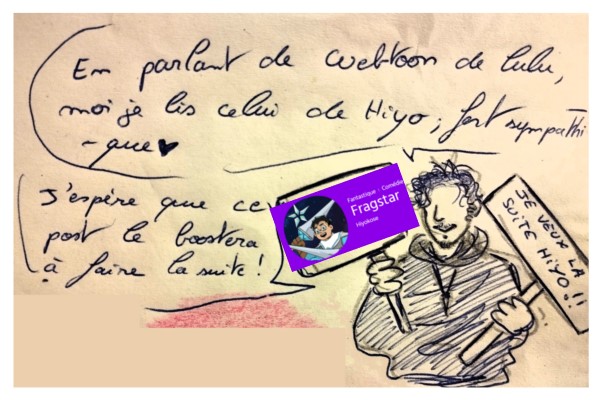 En parlant de webtoon de lulu,
moi je lis celui de Hiyo ; fort sympathi
-que♥
J'espère que ce
post le boostera
à faire la suite !
Fantastique · Comédie
Fragstar
Hiyokose
JE VEUX LA
SUITE HIYO !!